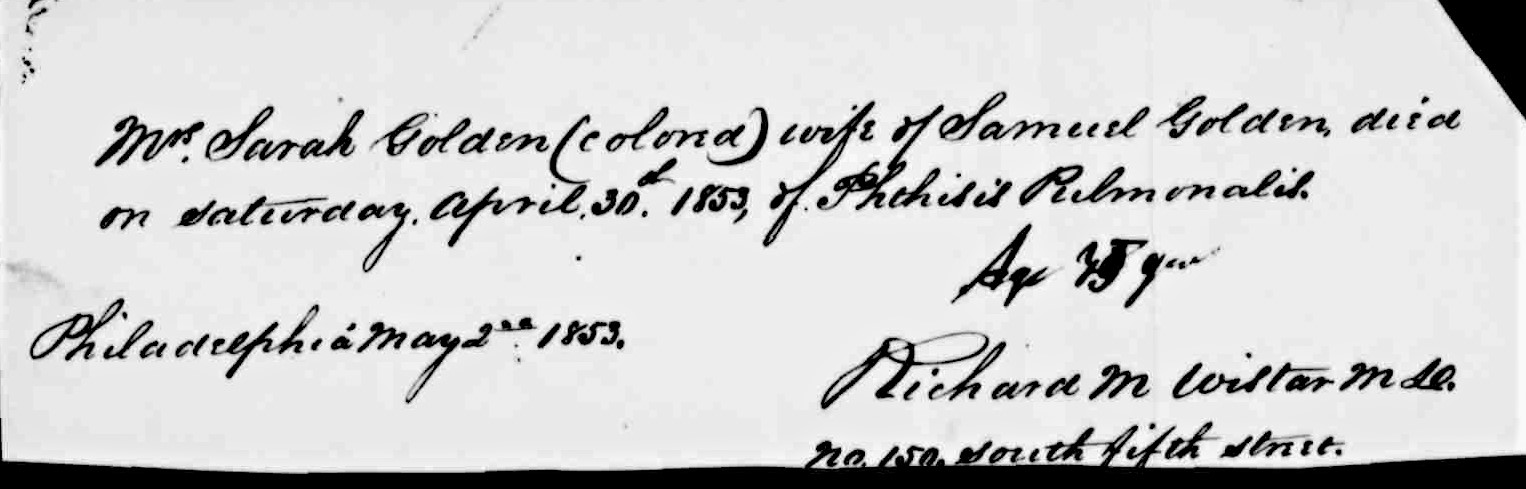 Mrs. Sarah Golden (colored) wife of Samuel Golden, died
on saturday, April, 30th. 1853, of Phthisis Pulmonalis.
Age yrs
Philadelphia May 2nd 1853.
Richard M Wistar M D.
No. 150, south fifth street.